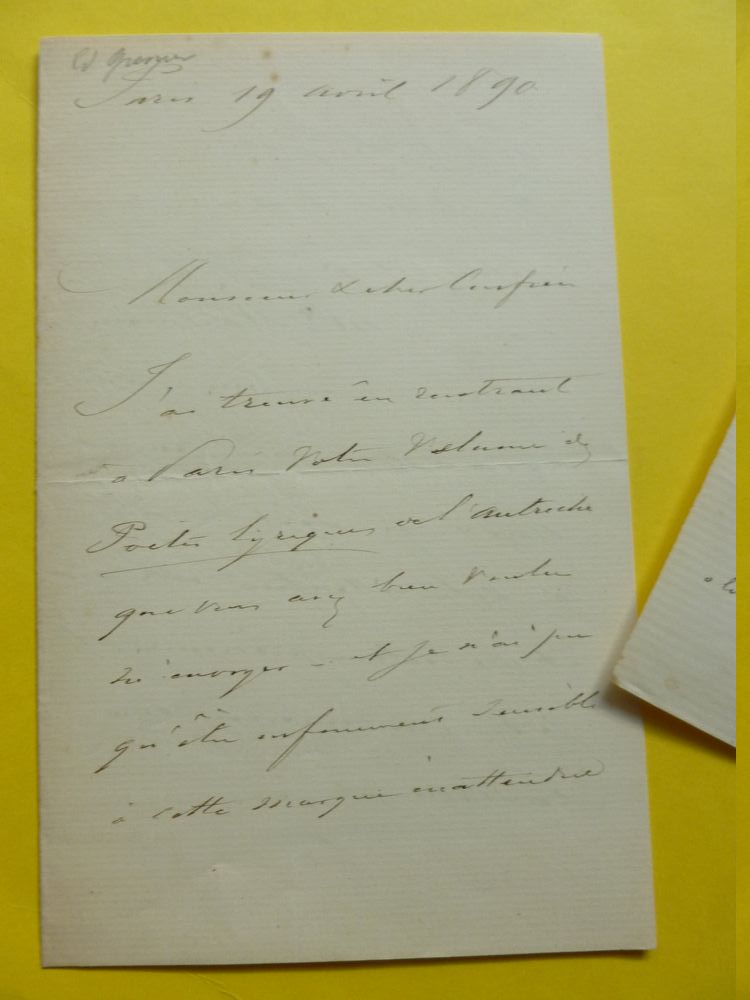 Ed Grenier
Paris 19 avril 1890
Monsieur & cher Confrère
J'ai trouvé en rentrant
à Paris votre volume des
Poètes lyriques de l'Autriche
que vous avez bien voulu
m'envoyer – et je n'ai pu
qu'être infiniment sensible
à cette marque inattendue